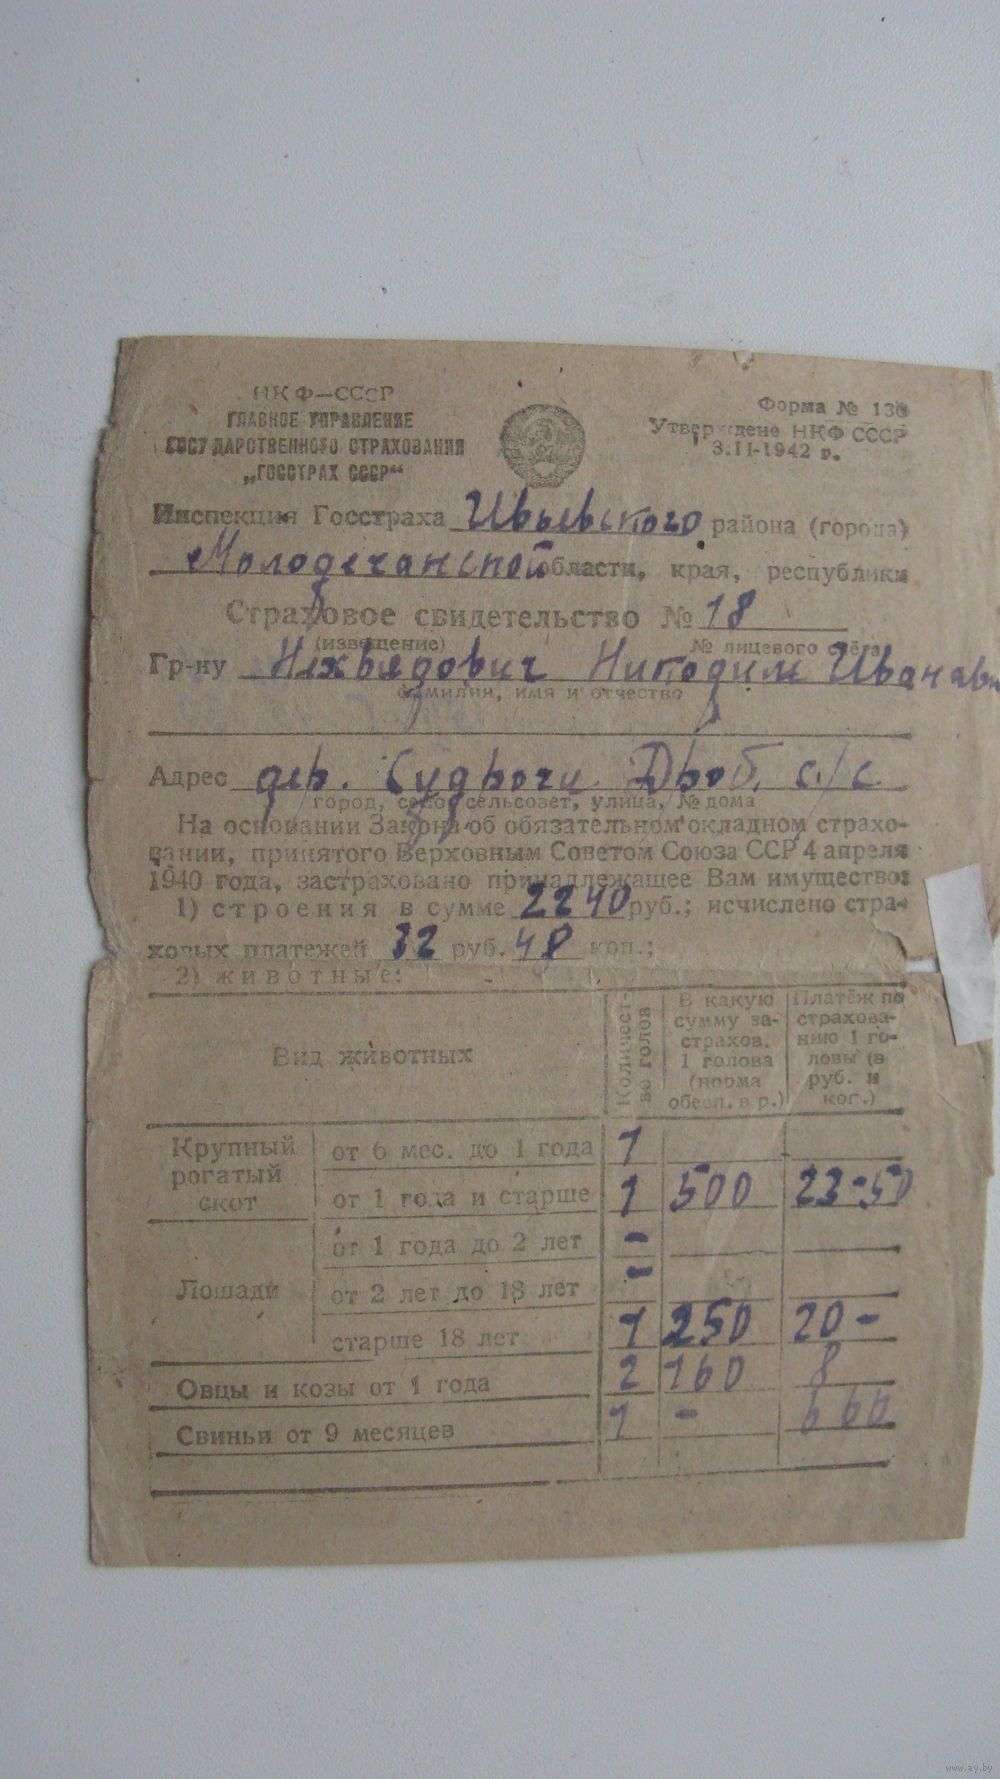 НКФ—СССР
ГЛАВНОЕ УПРАВЛЕНИЕ
ГОСУДАРСТВЕННОГО СТРАХОВАНИЯ
„ГОССТРАХ СССР“
Форма №
Утверждене НКФ СССР
3.II-1942 г.
Инспекция Госстраха Ивьевского района (города)
Молодечанской области, края, республики
Страховое свидетельство № 18
(извещение) № лицевого счёта
Гр-ну Никодим Иванавич
фамилия, имя и отчество
Адрес дер. Судрочи Дроб. с/с
город, село, сельсовет, улица, № дома
На основании Закона об обязательном окладном страхо-
вании, принятого Верховным Советом Союза ССР 4 апреля
1940 года, застраховано принадлежащее Вам имущество:
1) строения в сумме 2240 руб.; исчислено стра-
ховых платежей 32 руб. 48 коп.;
2) животные:
Вид животных
Количест-
во голов
В какую
сумму за-
страхов.
1 голова
(норма
обесп. в р.)
Платёж по
страхова-
нию 1 го-
ловы (в
руб. и
коп.)
Крупный
рогатый
скот
от 6 мес. до 1 года 1
от 1 года и старше 1 500 23-50
Лошади
от 1 года до 2 лет -
от 2 лет до 18 лет -
старше 18 лет 1 250 20-
Овцы и козы от 1 года 2 160 8
Свиньи от 9 месяцев 1 -
www.ay.by